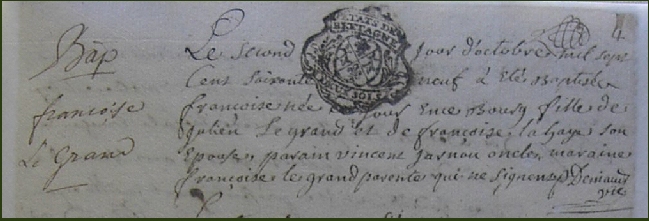 Bap
francoise
Le Grand
4
ETATS DE
BRETAGNE
Le second jour d'octobre mil sept
cent soixante neuf a été Baptisée
francoise née jour en ce Bourg fille de
julien Le grand et de francoise la haye son
Epouse parain vincent jarnou oncle maraine
francoise le grand parente qui ne signent